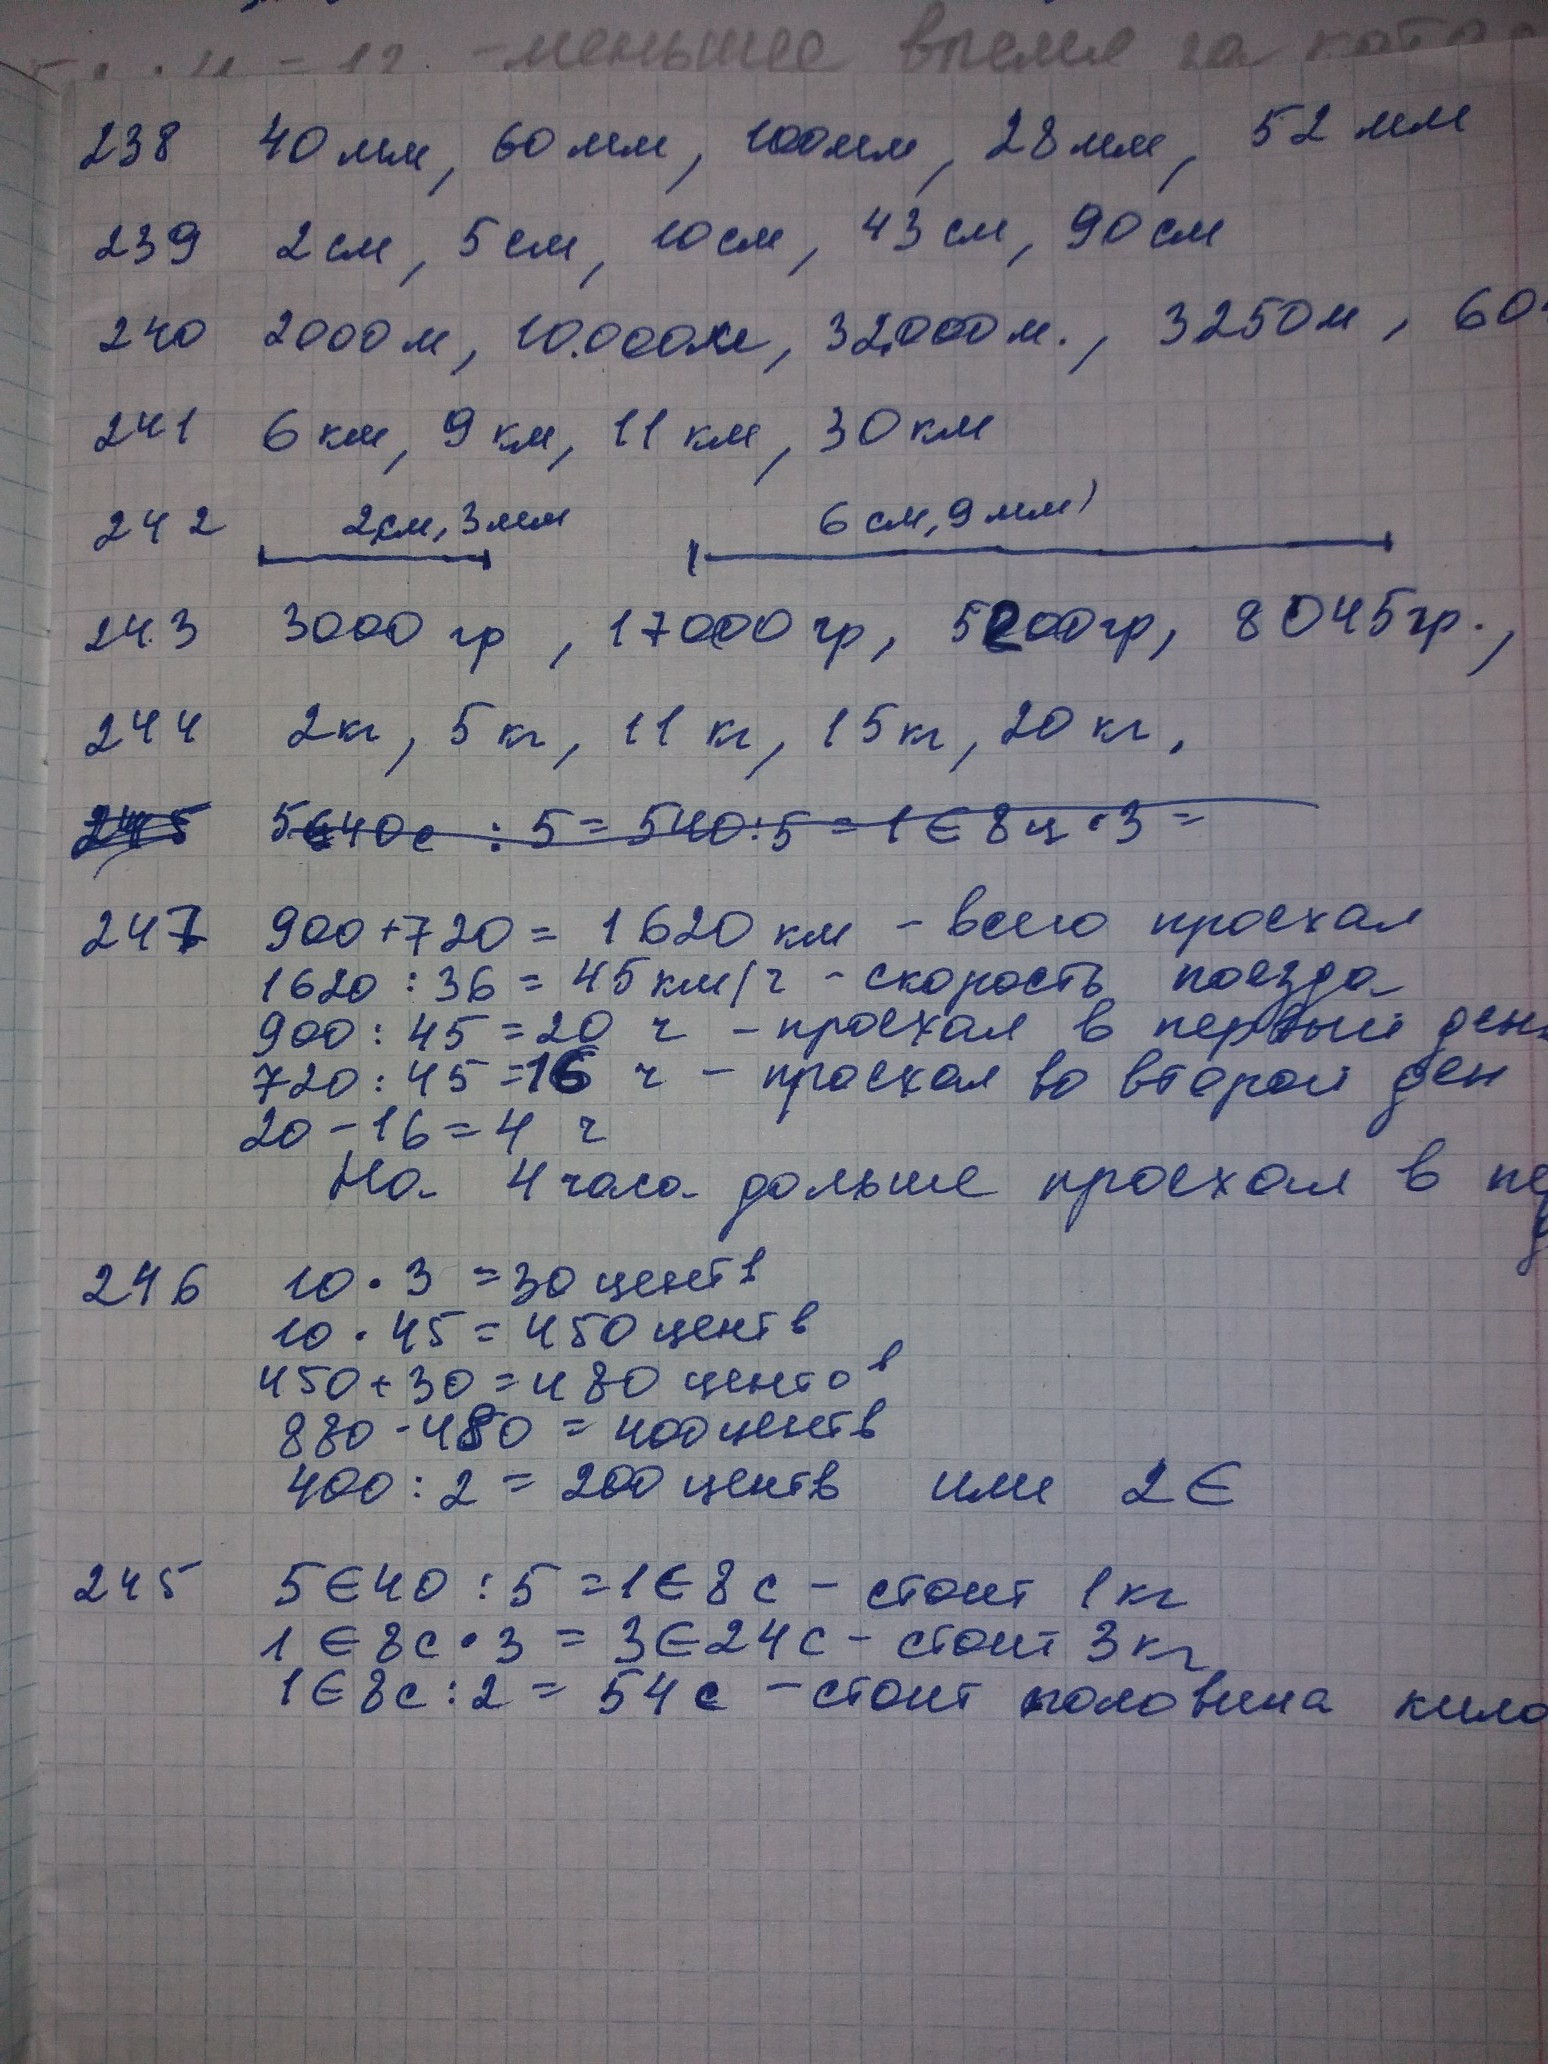 -меньшее время за
238 40 мм, 60 мм, 100мм, 28 мм, 52 мм
239 2 см, 5 см, 10 см, 43 см, 90 см
240 2000 м, 10.000м, 32.000 м., 3250 м, 60
241 6 км, 9 км, 11 км, 30 км
242 2см, 3мм 6 см, 9 мм
243 3000 гр, 17000 гр, 5200гр, 8045гр.,
244 2кг, 5 кг, 11 кг, 15 кг, 20 кг,
245 5€40с : 5 = 540:5 = 1€8ц·3 =
247 900+720 = 1620 км - всего проехал
1620 : 36 = 45 км/ч - скорость поезда
900 : 45 = 20 ч - проехал в первый ден
720 : 45 = 16 ч - проехал во второй ден
20 - 16 = 4 ч
На 4 часа дольше проехал в пер
246 10 · 3 = 30 центв
10 · 45 = 450 центв
450 + 30 = 480 центов
880 - 480 = 400 центв
400 : 2 = 200 центв или 2€
245 5€40 : 5 = 1€8с - стоит 1 кг
1€8с · 3 = 3€24с - стоит 3 кг
1€8с : 2 = 54с - стоит половина кило